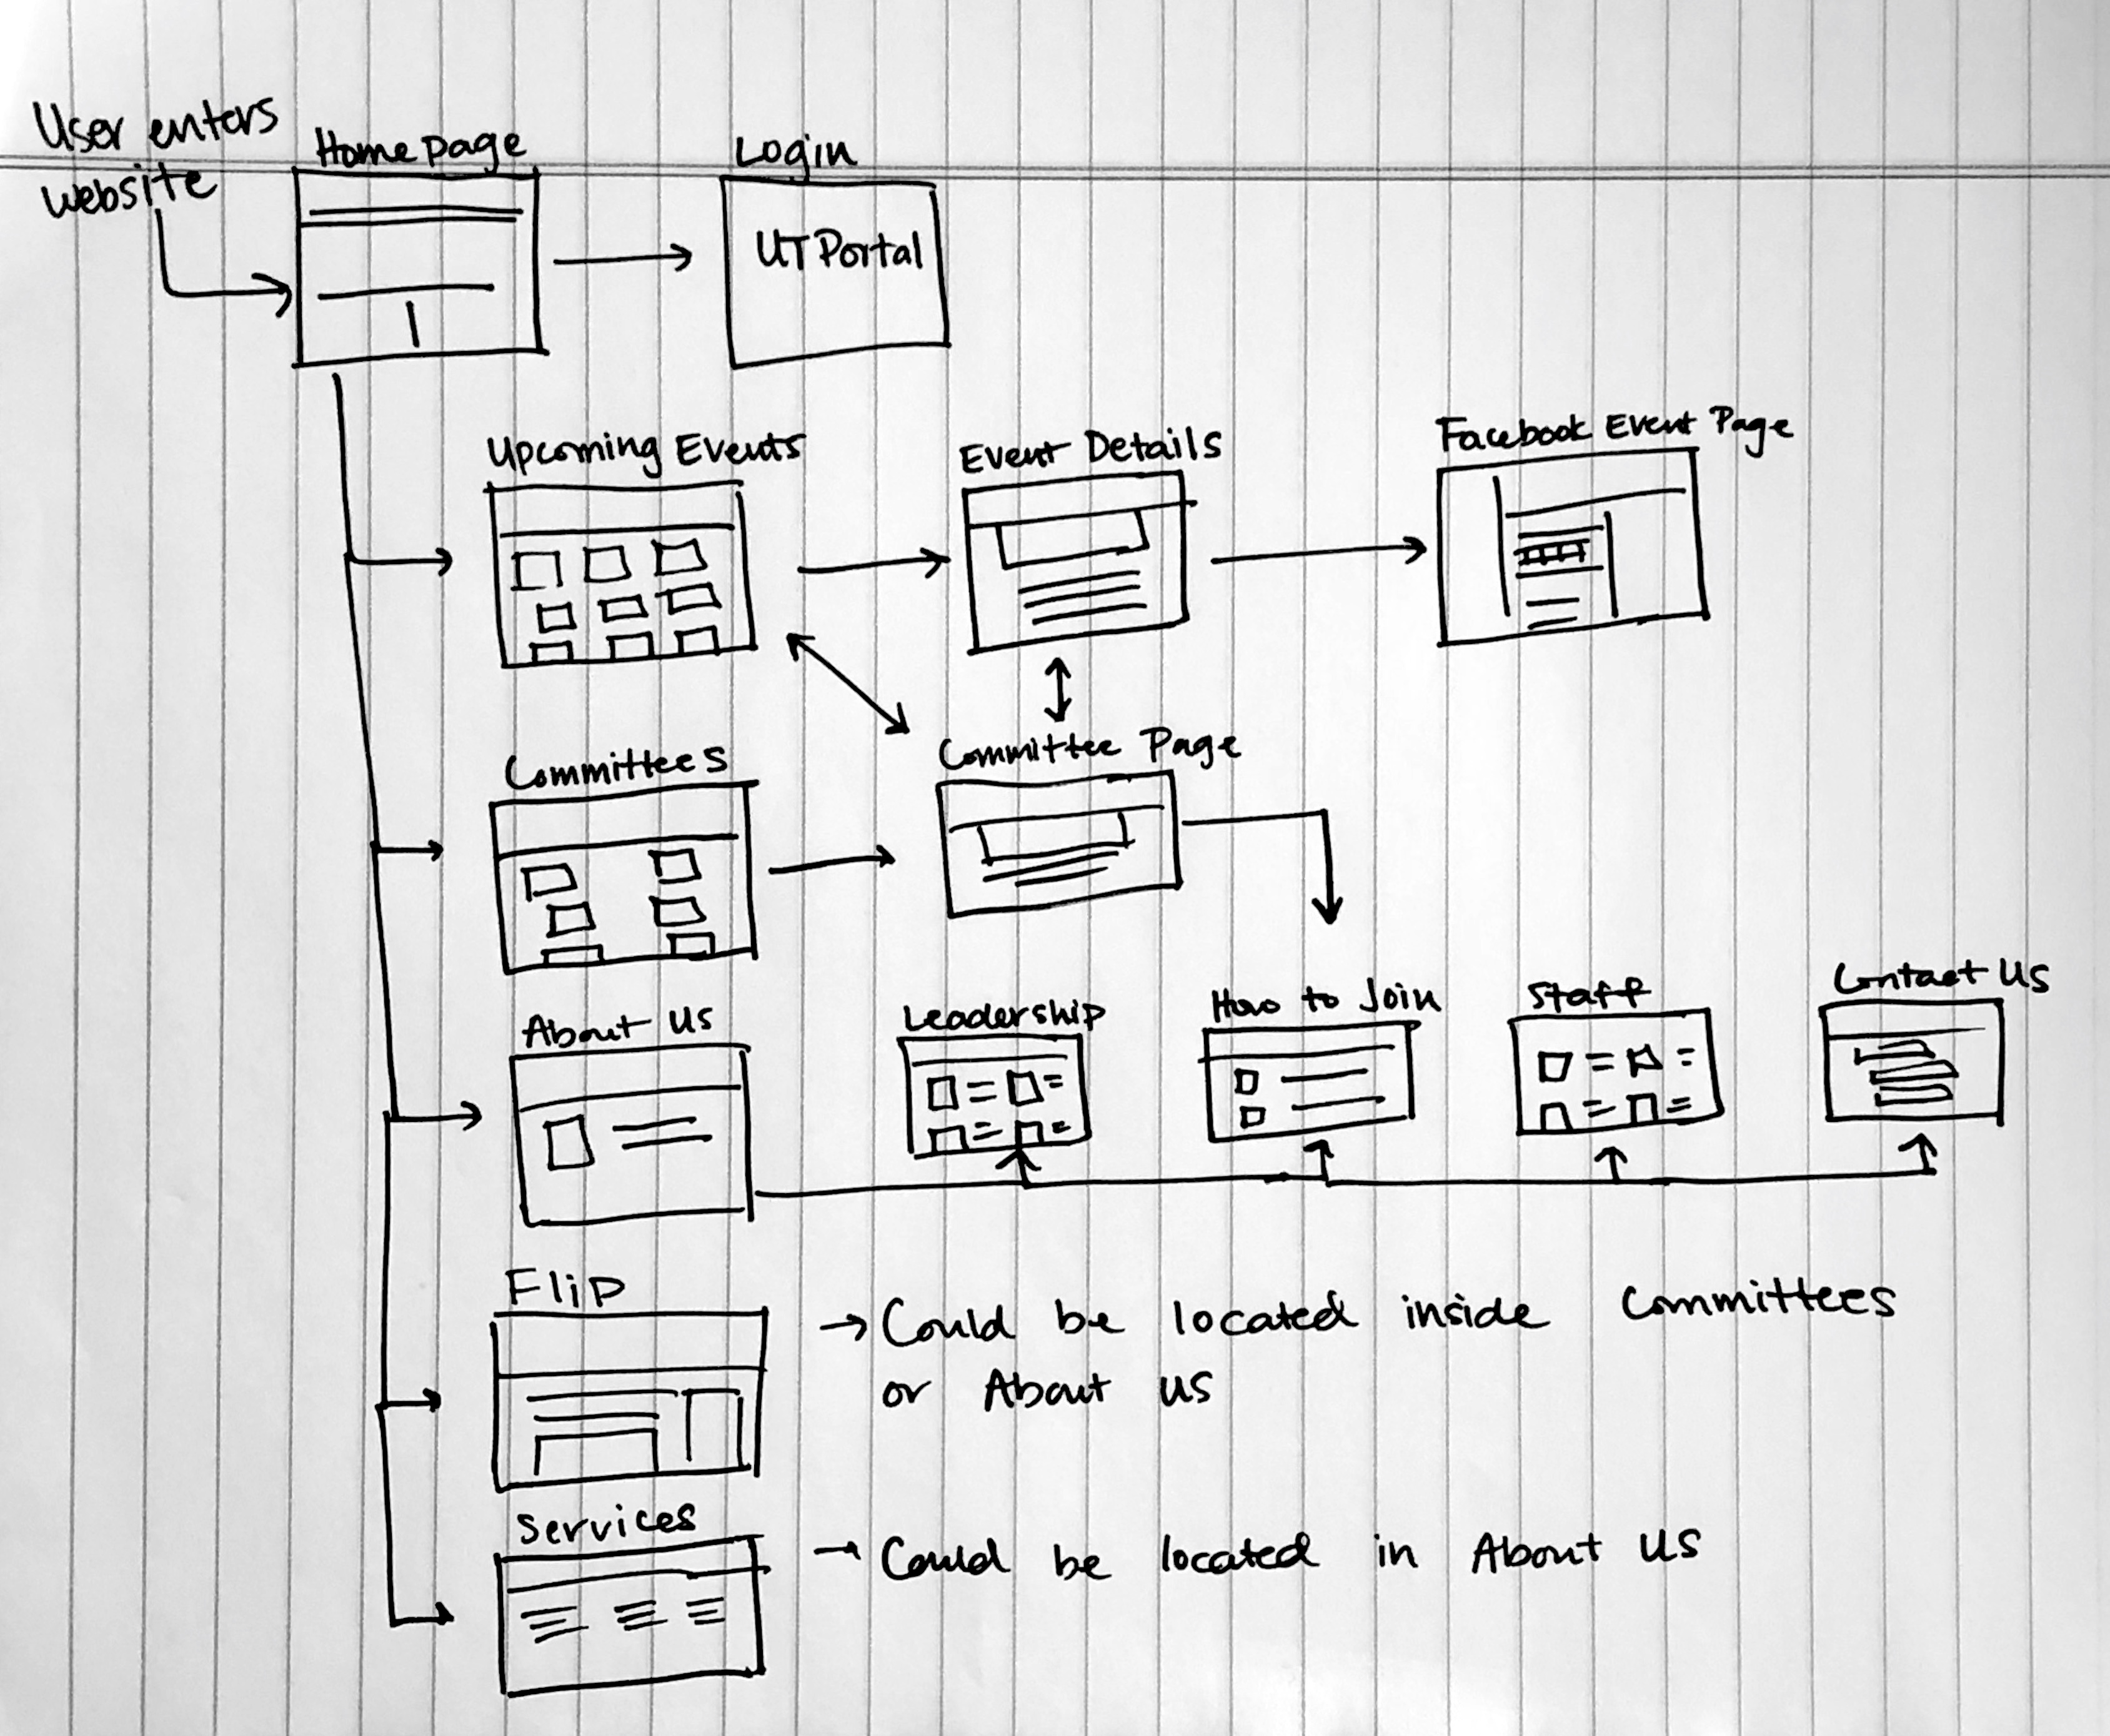 User enters
website
Home page
Login
UT Portal
Upcoming Events
Event Details
Facebook Event Page
Committees
Committee Page
About Us
Leadership
How to Join
Staff
Contact Us
Flip
→ Could be located inside Committees
or About us
Services
→ Could be located in About Us